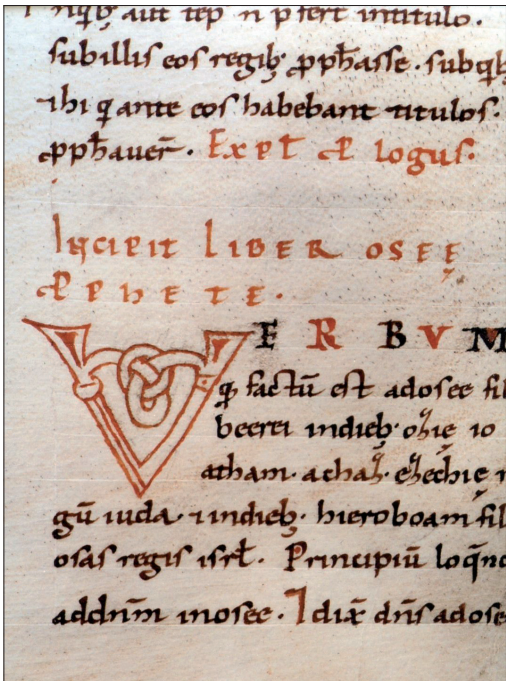 nqb; aut tep n p fert intitulo.
subillis eos regib; ꝓph̄asse. subqb;
ihi q ante eos habebant titulos.
ꝓph̄auer̄. Expł ꝓlogus.
Incipit Liber osee
ꝓphete.
VERBVM
qđ factū est adosee fil
beeri indieb; ozię io
atham. achaz. ezechię r
gū iuda. ⁊ indieb; hieroboam fil
osas regis isrł. Principiū loq̄nd
addnm̄ inosee. ⁊ dix̄ dn̄s adose